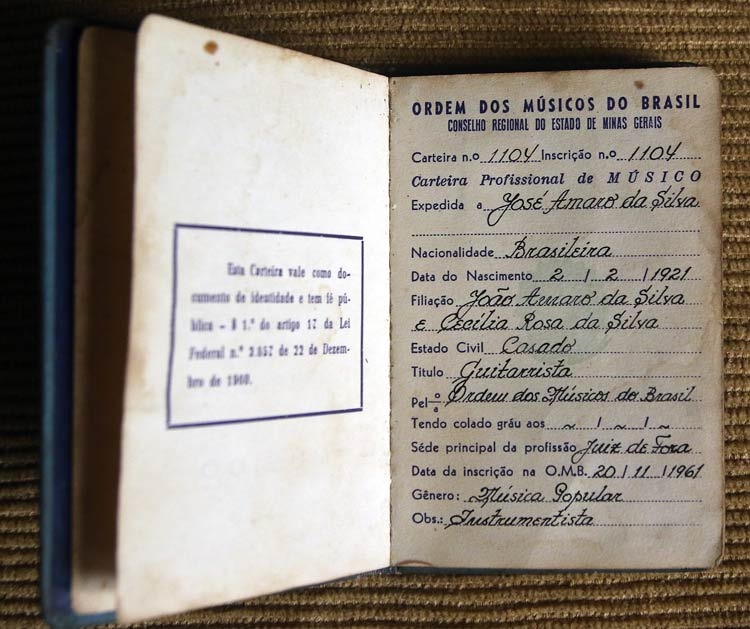 Esta Carteira vale como do-
cumento de identidade e tem fé pú-
blica – § 1.º do artigo 17 da Lei
Federal n.º 3.857 de 22 de Dezem-
bro de 1960.
ORDEM DOS MÚSICOS DO BRASIL
CONSELHO REGIONAL DO ESTADO DE MINAS GERAIS
Carteira n.º 1104 Inscrição n.º 1104
Carteira Profissional de MÚSICO
Expedida a José Amaro da Silva
Nacionalidade Brasileira
Data do Nascimento 2 / 2 / 1921
Filiação João Amaro da Silva
e Cecília Rosa da Silva
Estado Civil Casado
Titulo Guitarrista
Pel o/a Ordem dos Músicos do Brasil
Tendo colado gráu aos ~ / ~ / ~
Séde principal da profissão Juiz de Fora
Data da inscrição na O.M.B. 20 / 11 / 1961
Gênero: Música Popular
Obs.: Instrumentista